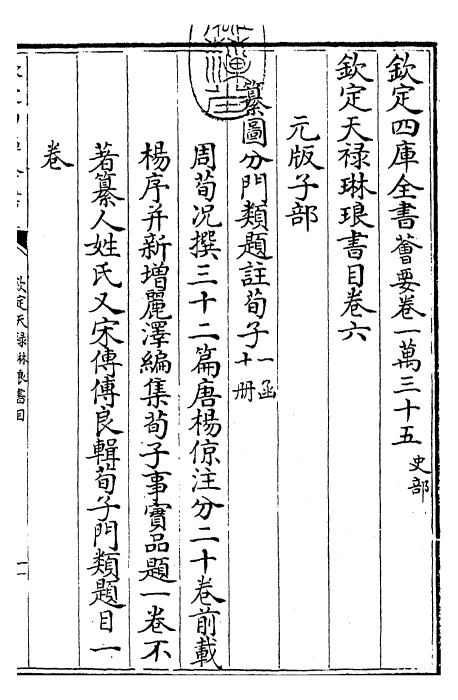 欽定四庫全書薈要卷一萬三十五 史部
欽定天祿琳琅書目卷六
元版子部
纂圖分門類題註荀子 一函十册
周荀況撰三十二篇唐楊倞注分二十卷前載
楊序并新增麗澤編集荀子事實品題一卷不
著纂人姓氏又宋傳傅良輯荀子門類題目一
卷
欽定天祿琳琅書目